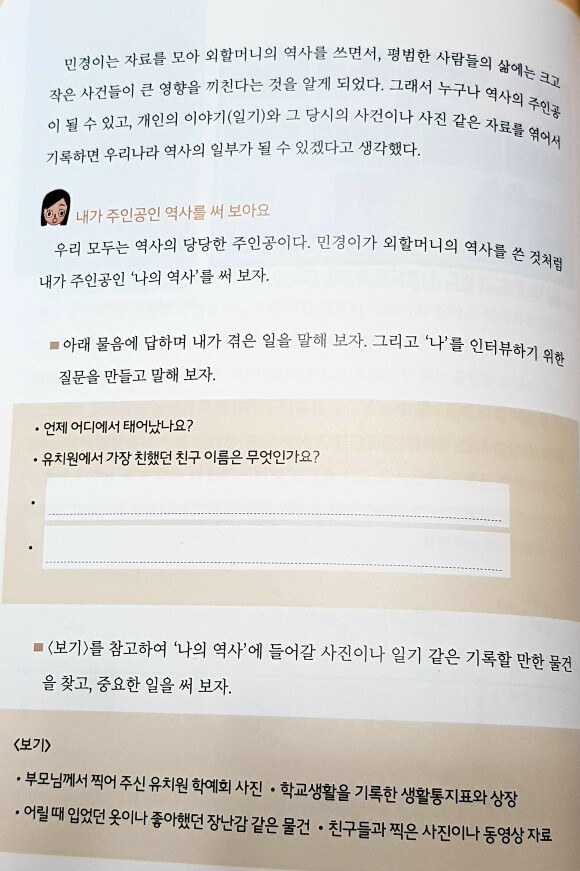 민경이는 자료를 모아 외할머니의 역사를 쓰면서, 평범한 사람들의 삶에는 크고
작은 사건들이 큰 영향을 끼친다는 것을 알게 되었다. 그래서 누구나 역사의 주인공
이 될 수 있고, 개인의 이야기(일기)와 그 당시의 사건이나 사진 같은 자료를 엮어서
기록하면 우리나라 역사의 일부가 될 수 있겠다고 생각했다.
내가 주인공인 역사를 써 보아요
우리 모두는 역사의 당당한 주인공이다. 민경이가 외할머니의 역사를 쓴 것처럼
내가 주인공인 ‘나의 역사’를 써 보자.
■ 아래 물음에 답하며 내가 겪은 일을 말해 보자. 그리고 ‘나’를 인터뷰하기 위한
질문을 만들고 말해 보자.
• 언제 어디에서 태어났나요?
• 유치원에서 가장 친했던 친구 이름은 무엇인가요?
•
•
■ 〈보기〉를 참고하여 ‘나의 역사’에 들어갈 사진이나 일기 같은 기록할 만한 물건
을 찾고, 중요한 일을 써 보자.
〈보기〉
• 부모님께서 찍어 주신 유치원 학예회 사진 • 학교생활을 기록한 생활통지표와 상장
• 어릴 때 입었던 옷이나 좋아했던 장난감 같은 물건 • 친구들과 찍은 사진이나 동영상 자료